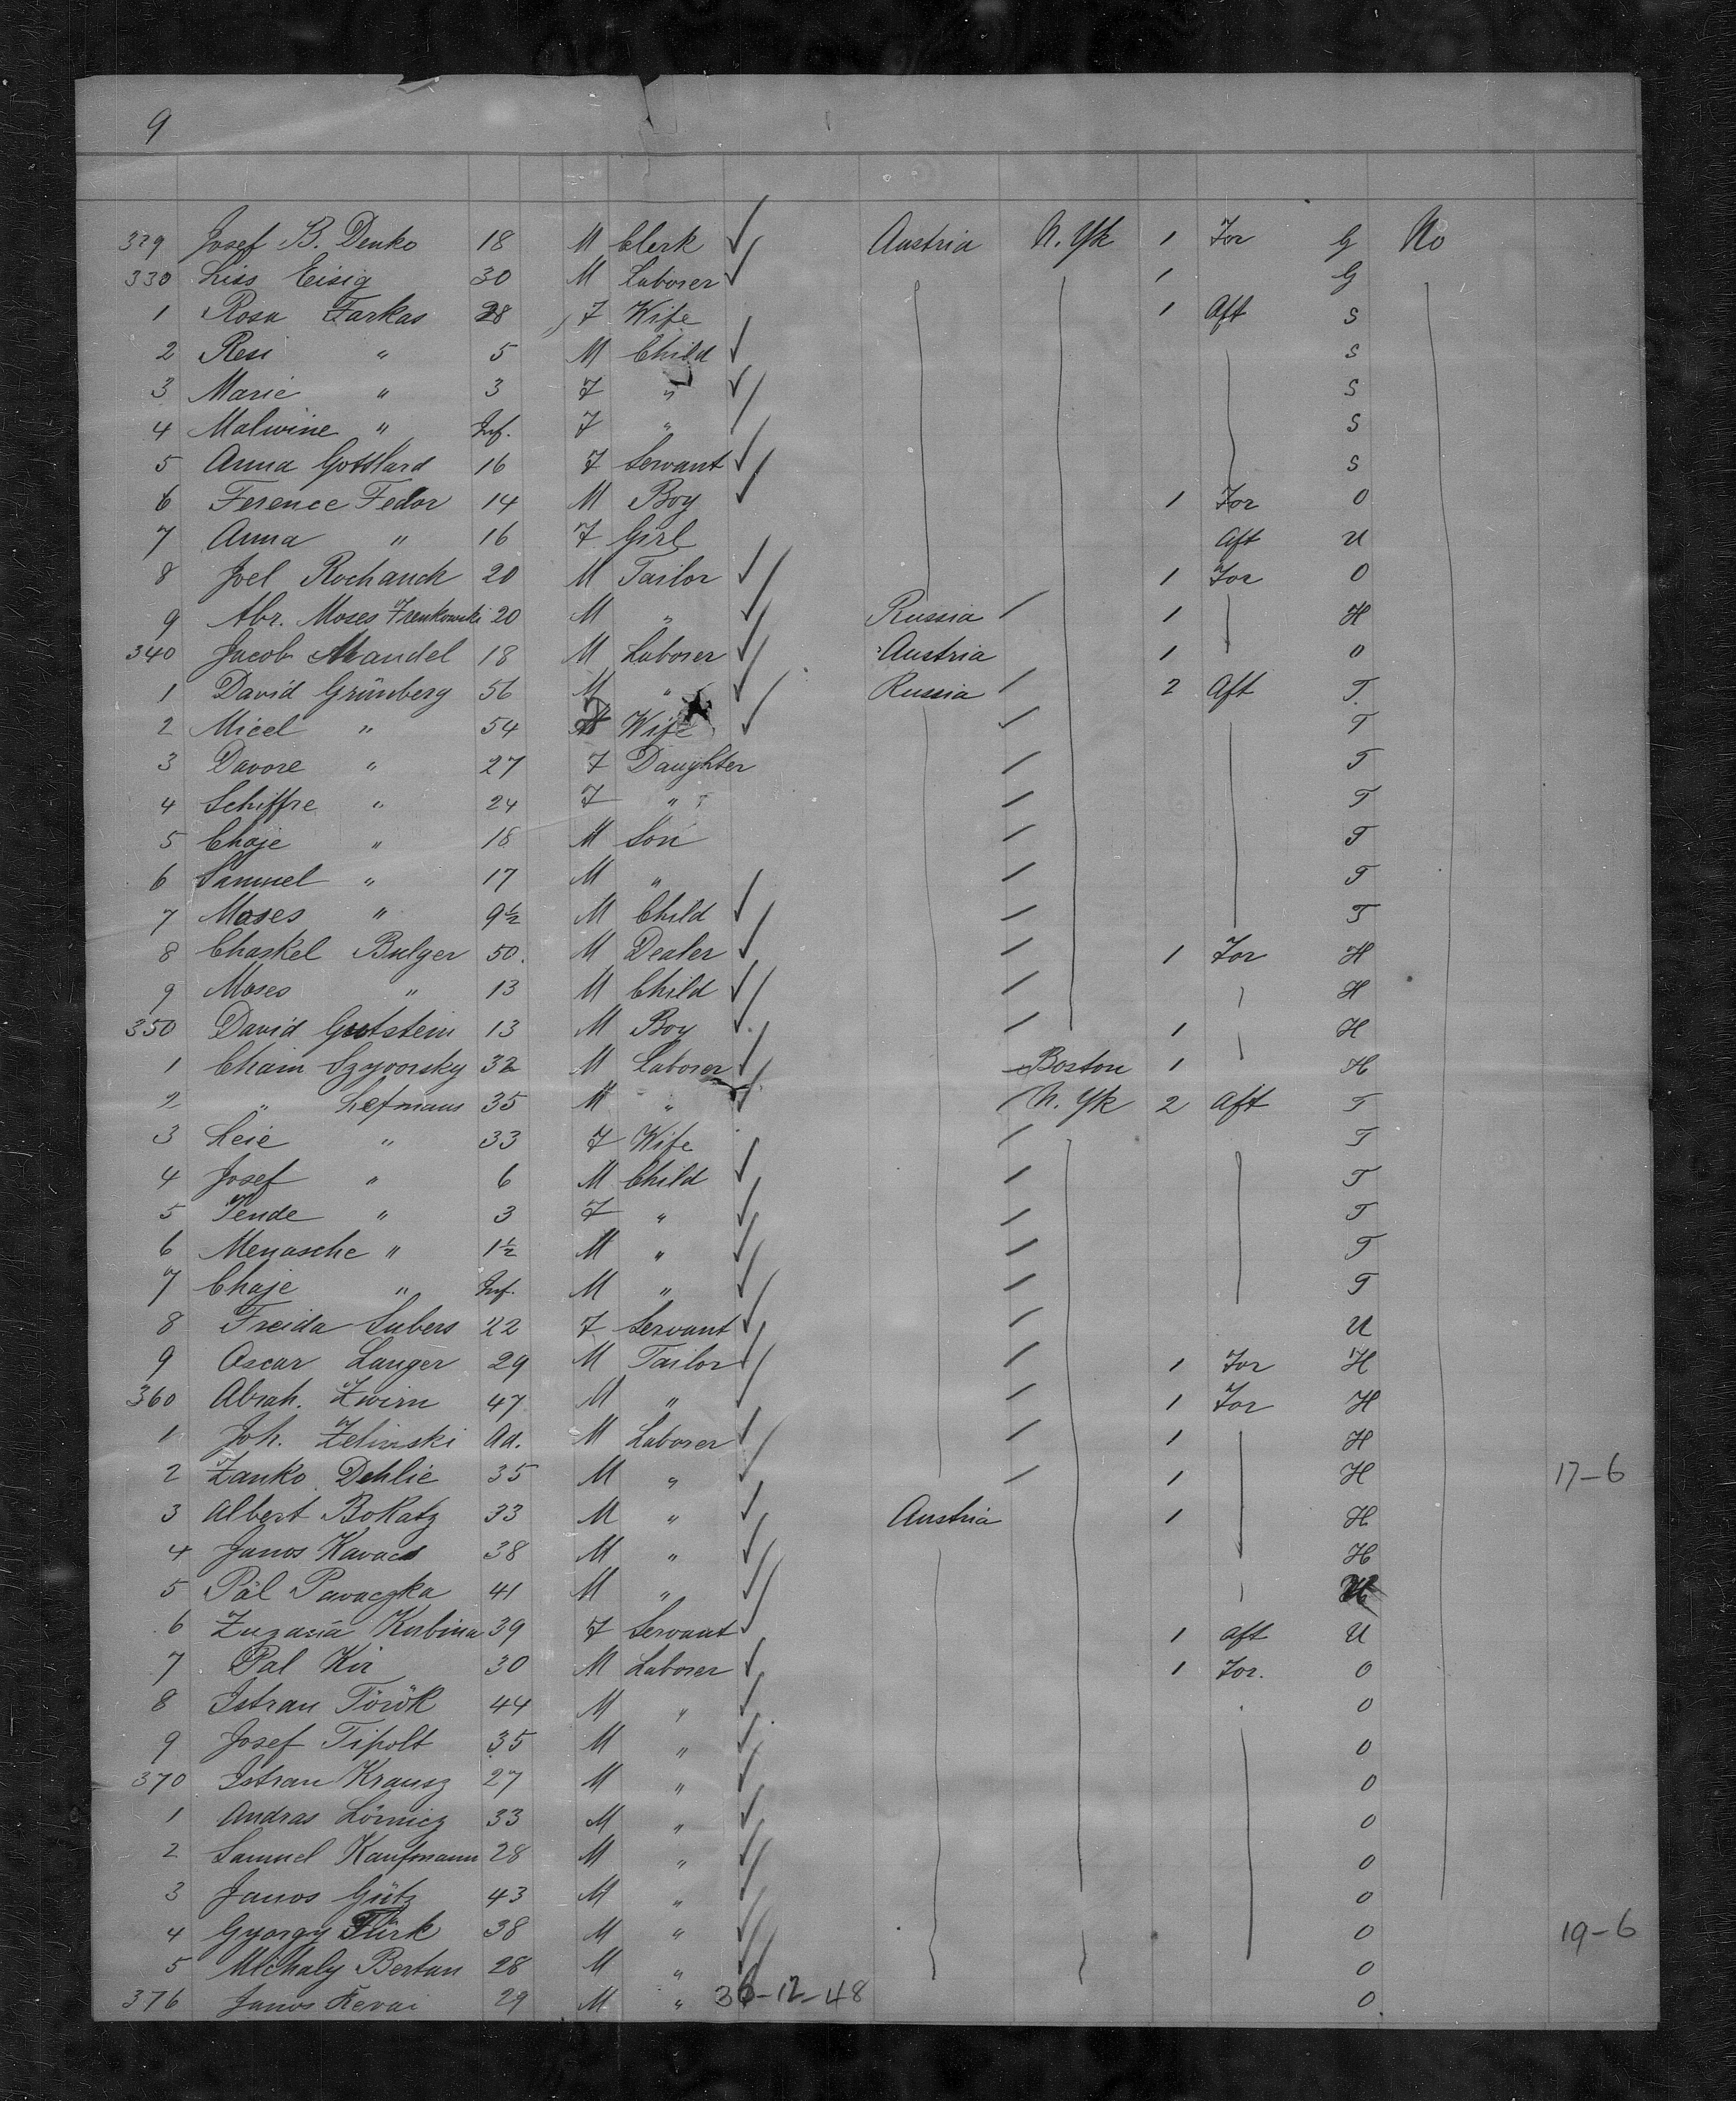 9
329 Josef B. Denko 18 M Clerk Austria N. Yk 1 For G No
330 Liss Eisig 30 M Laborer 1 G
1 Rosa Farkas 28 F Wife 1 Aft S
2 Resi " 5 M Child S
3 Marie " 3 F " S
4 Malwine " Inf. F " S
5 Anna Gotthard 16 F Servant S
6 Ference Fedor 14 M Boy 1 For O
7 Anna " 16 F Girl Aft U
8 Joel Rochauck 20 M Tailor 1 For O
9 Abr. Moses Frenkowski 20 M " Russia 1 H
340 Jacob Mandel 18 M Laborer Austria 1 O
1 David Grünberg 56 M " Russia 2 Aft T
2 Micel " 54 F Wife T
3 Davore " 27 F Daughter T
4 Schiffre " 24 F " T
5 Chaje " 18 M Son T
6 Samuel " 17 M " T
7 Moses " 9½ M Child T
8 Chaskel Bulger 50. M Dealer 1 For H
9 Moses " 13 M Child H
350 David Gutstein 13 M Boy 1 H
1 Chaim Szyvorsky 32 M Laborer Boston 1 H
2 " Lefmans 35 M " N. Yk 2 Aft T
3 Leie " 33 F Wife T
4 Josef " 6 M Child T
5 Tende " 3 F " T
6 Menasche " 1½ M " T
7 Chaje " Inf. M " T
8 Freida Subers 22 F Servant U
9 Oscar Langer 29 M Tailor 1 For H
360 Abrah. Zwirn 47 M " 1 For H
1 Joh. Zelinski Ad. M Laborer 1 H
2 Zanko Dehlie 35 M " 1 H 17-6
3 Albert BoKatz 33 M " Austria 1 H
4 Janos Kavacs 38 M " H
5 Pál Pavaczka 41 M "
6 Zuzana Kubina 39 F Servant 1 Aft U
7 Pal Kir 30 M Laborer 1 For. O
8 Istran Török 44 M " O
9 Josef Tipolt 35 M " O
370 Istran Krausz 27 M " O
1 Andras Lörnicz 33 M " O
2 Samuel Kaufmann 28 M " O
3 Janos Gütz 43 M " O
4 Gyorgy Türk 38 M " O 19-6
5 Michaly Bertan 28 M " O
376 Janos Revai 29 M " 36-12-48 O